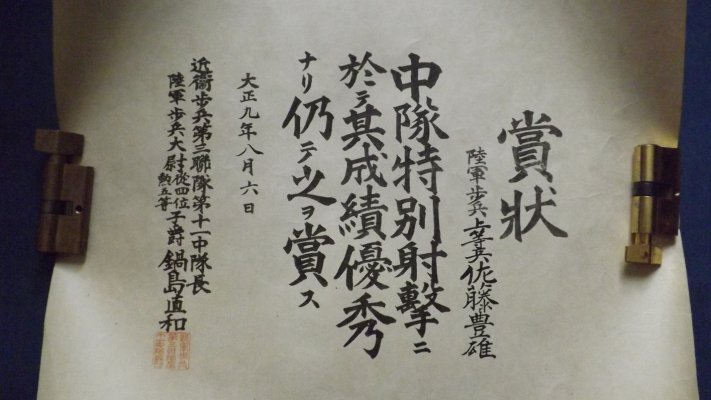 賞狀
陸軍步兵上等兵佐藤豊雄
中隊特別射擊ニ
於テ其成績優秀
ナリ仍テ之ヲ賞ス
大正九年八月六日
近衞步兵第三聯隊第十一中隊長
陸軍步兵大尉從四位勲五等子爵鍋島直和